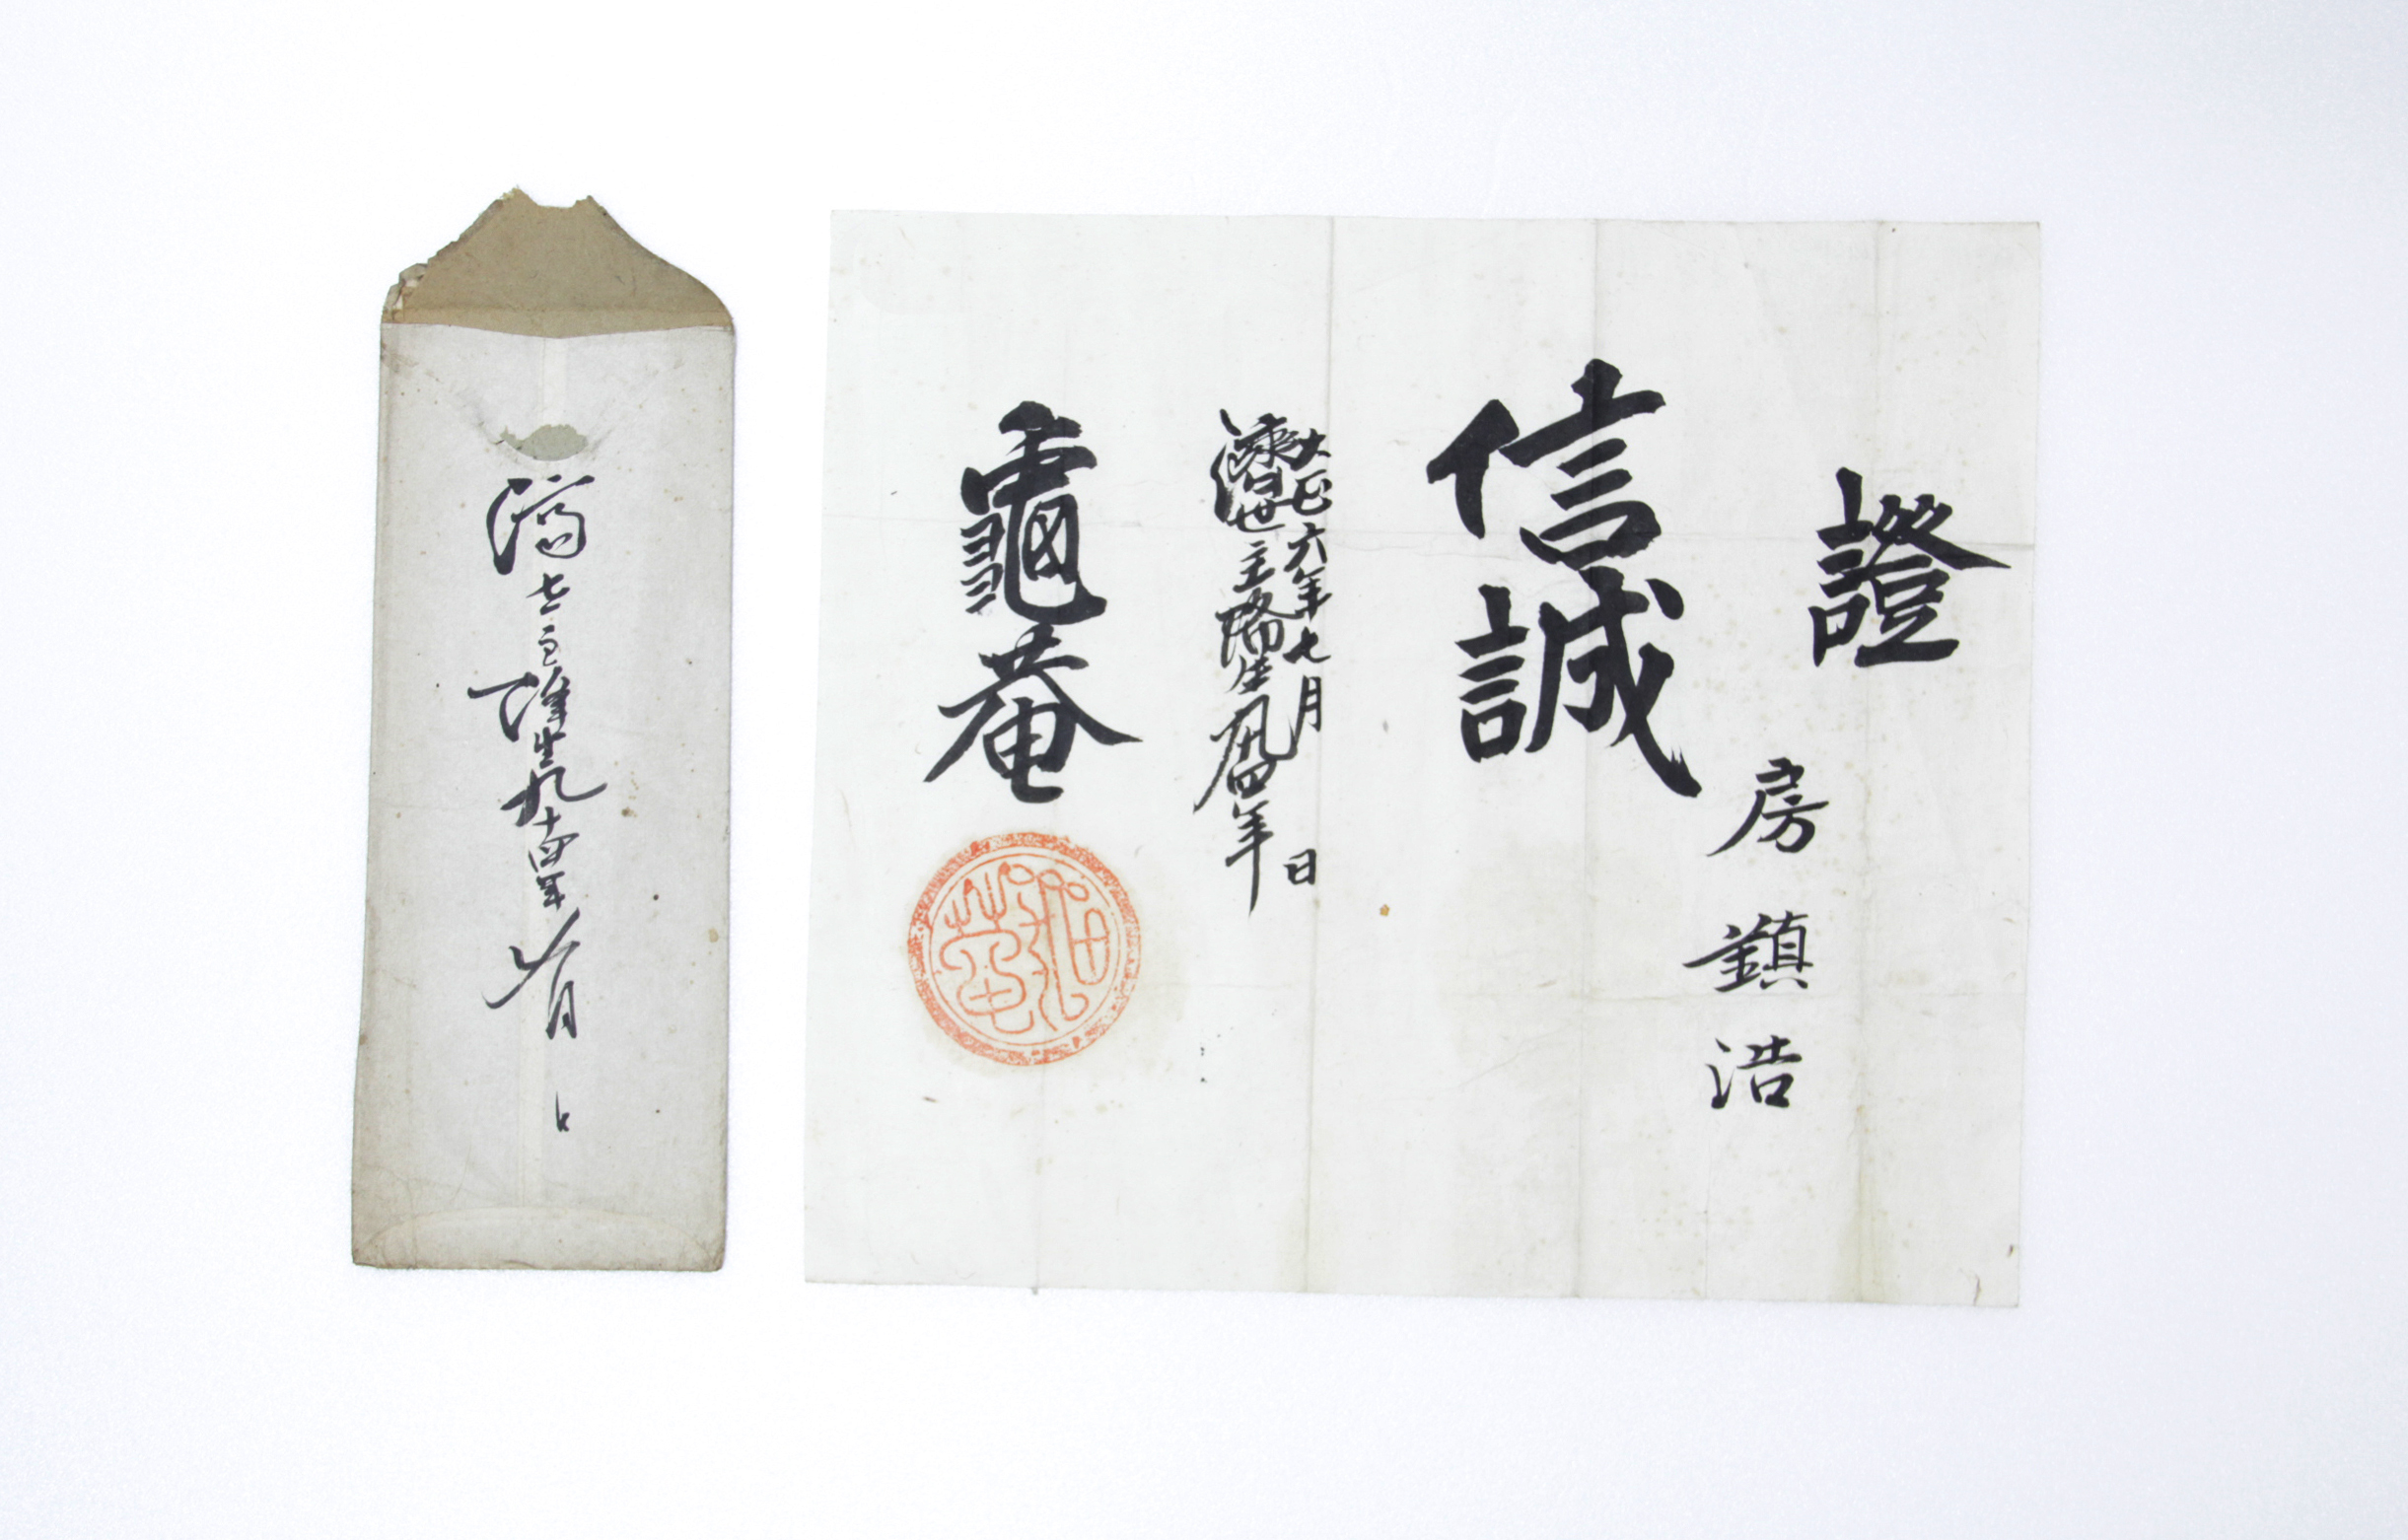 證
房鎭浩
信誠
大正六年七月 日
濟世主降生九十四年
龜菴
濟世主降生九十四年 月 日